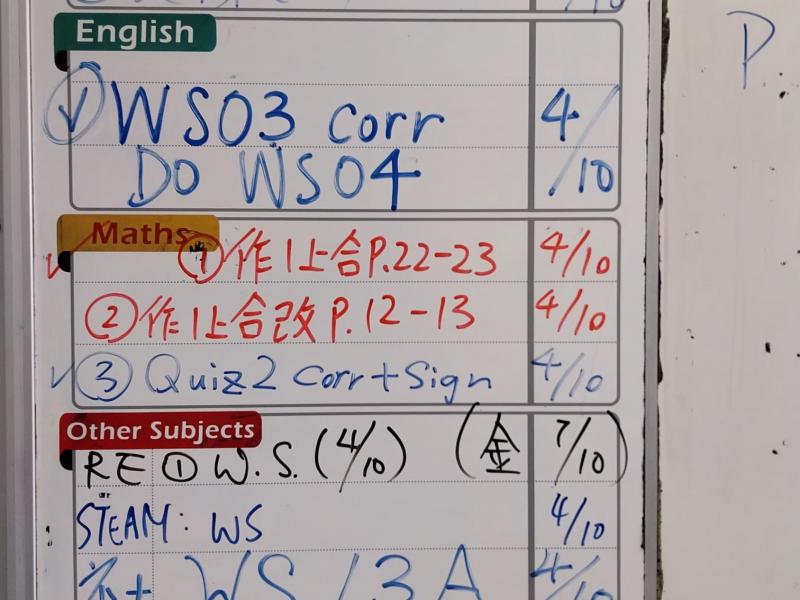 /10
English
P
WS03 Corr 4/10
DO WS04
Maths
①作1上合P.22-23 4/10
②作1上合改P.12-13 4/10
③ Quiz2 Corr+Sign 4/10
Other Subjects
RE ① W.S. (4/10) (金 7/10)
STEAM: WS 4/10
WS 13A 4/10